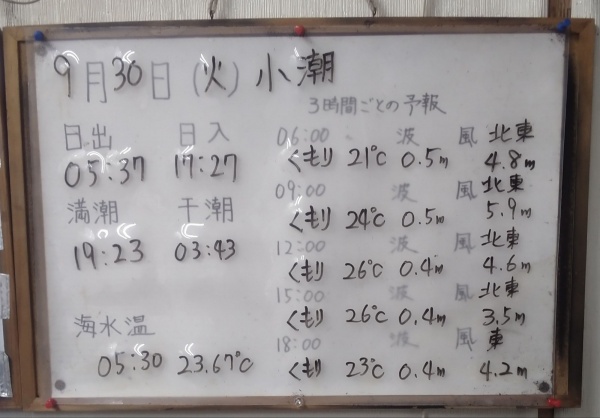 9月30日(火)小潮
3時間ごとの予報
日出 日入
05:37 17:27
満潮 干潮
19:23 03:43
海水温
05:30 23.67℃
06:00 波 風 北東
くもり 21℃ 0.5m 4.8m
09:00 波 風 北東
くもり 24℃ 0.5m 5.9m
12:00 波 風 北東
くもり 26℃ 0.4m 4.6m
15:00 波 風 北東
くもり 26℃ 0.4m 3.5m
18:00 波 風 東
くもり 23℃ 0.4m 4.2m